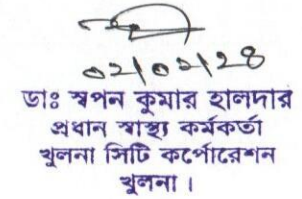 ০২/০২/২৪
ডাঃ স্বপন কুমার হালদার
প্রধান স্বাস্থ্য কর্মকর্তা
খুলনা সিটি কর্পোরেশন
খুলনা ।